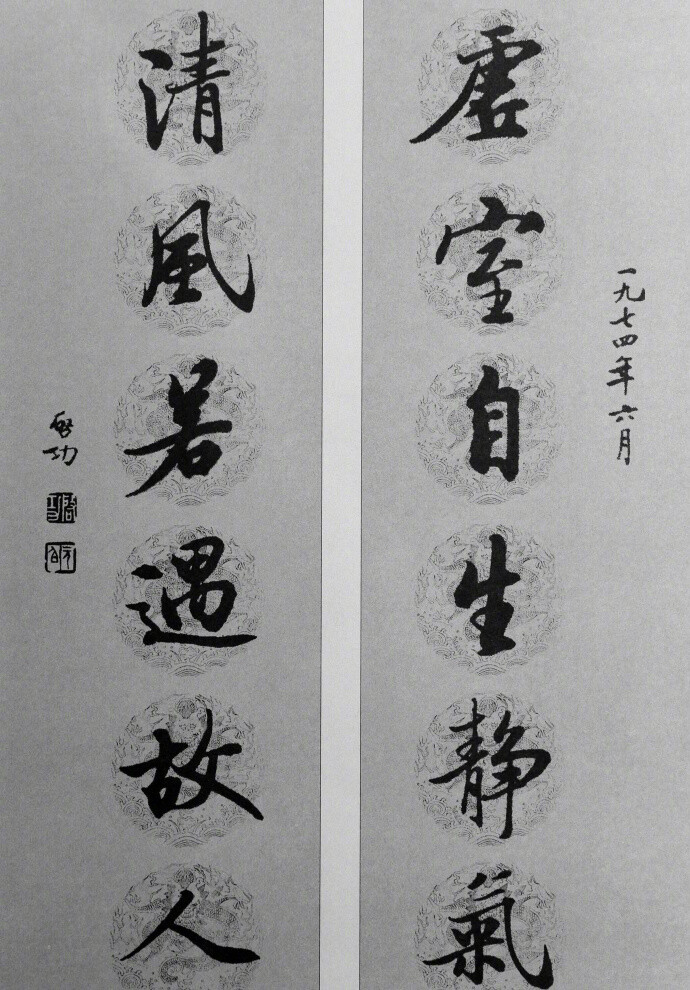 一九七四年六月
虚室自生静氣
清風若遇故人
啓功